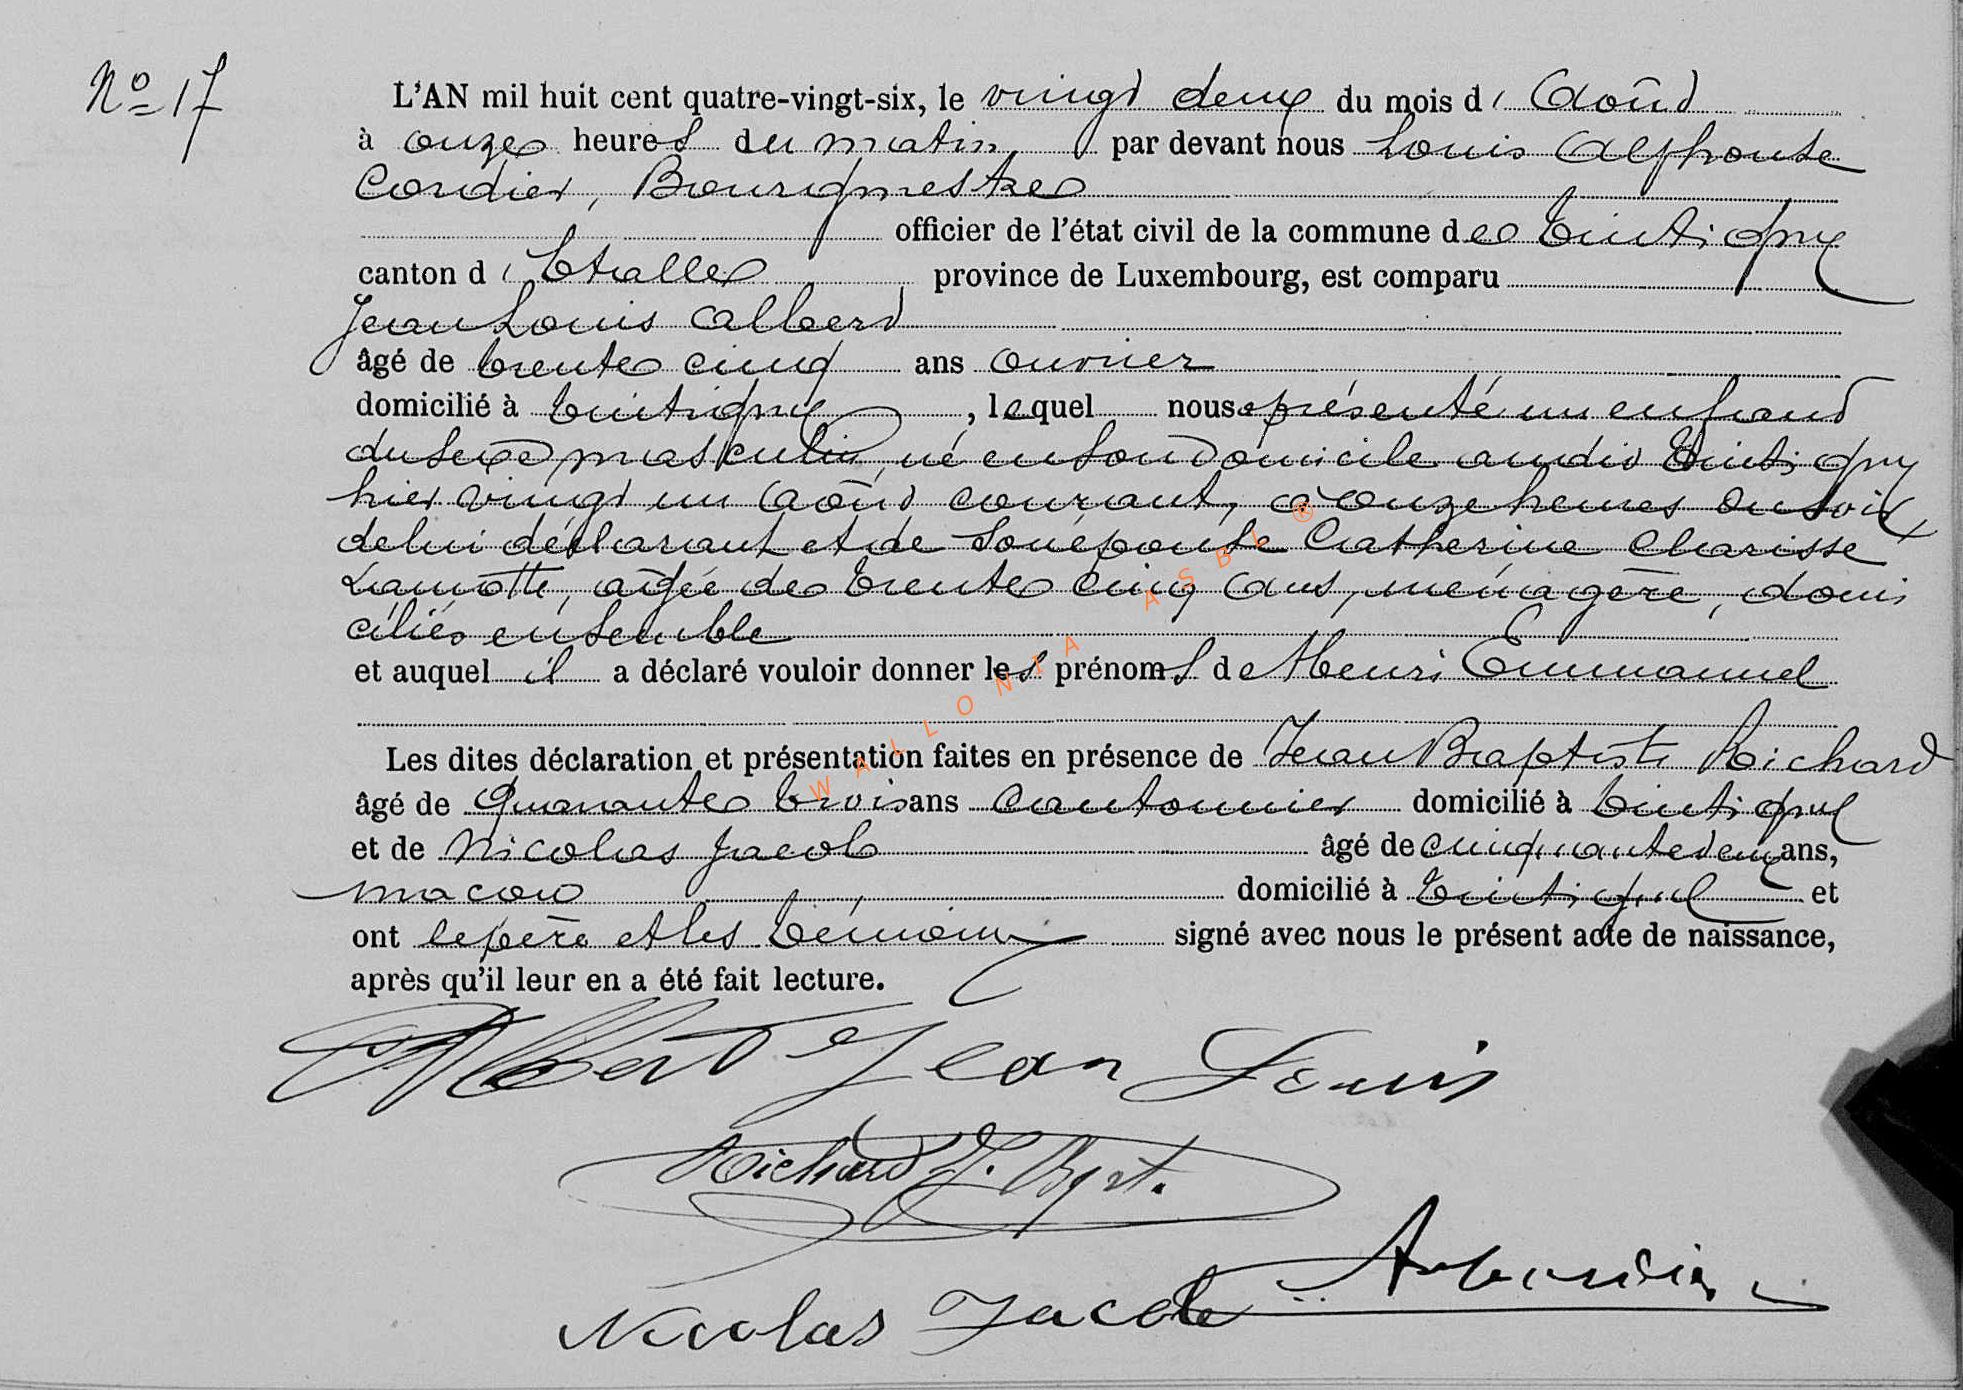 No 17
L'AN mil huit cent quatre-vingt-six, le vingt deux du mois d' Août
à onze heures du matin par devant nous Louis Alphonse
Cordier, Bourgmestre
officier de l'état civil de la commune de Tintigny
canton d' Etalle province de Luxembourg, est comparu
Jean Louis Albert
âgé de trente cinq ans ouvrier
domicilié à Tintigny, lequel nous a présenté un enfant
du sexe masculin, né en son domicile audit Tintigny
hier vingt un Août courant, à onze heures du soir,
de lui déclarant et de son épouse Catherine Clarisse
Lamotte, agée de trente cinq ans, ménagère, domi
ciliés ensemble
et auquel il a déclaré vouloir donner les prénoms de Henri Emmanuel
Les dites déclaration et présentation faites en présence de Jean Baptiste Richard
âgé de quarante trois ans cantonnier domicilié à Tintigny
et de Nicolas Jacob âgé de cinquante deux ans,
macon domicilié à Tintigny et
ont le père et les témoins signé avec nous le présent acte de naissance,
après qu'il leur en a été fait lecture.
Albert Jean Louis
Richard J. Bpt.
Nicolas Jacob
WALLONIA ASBL ®